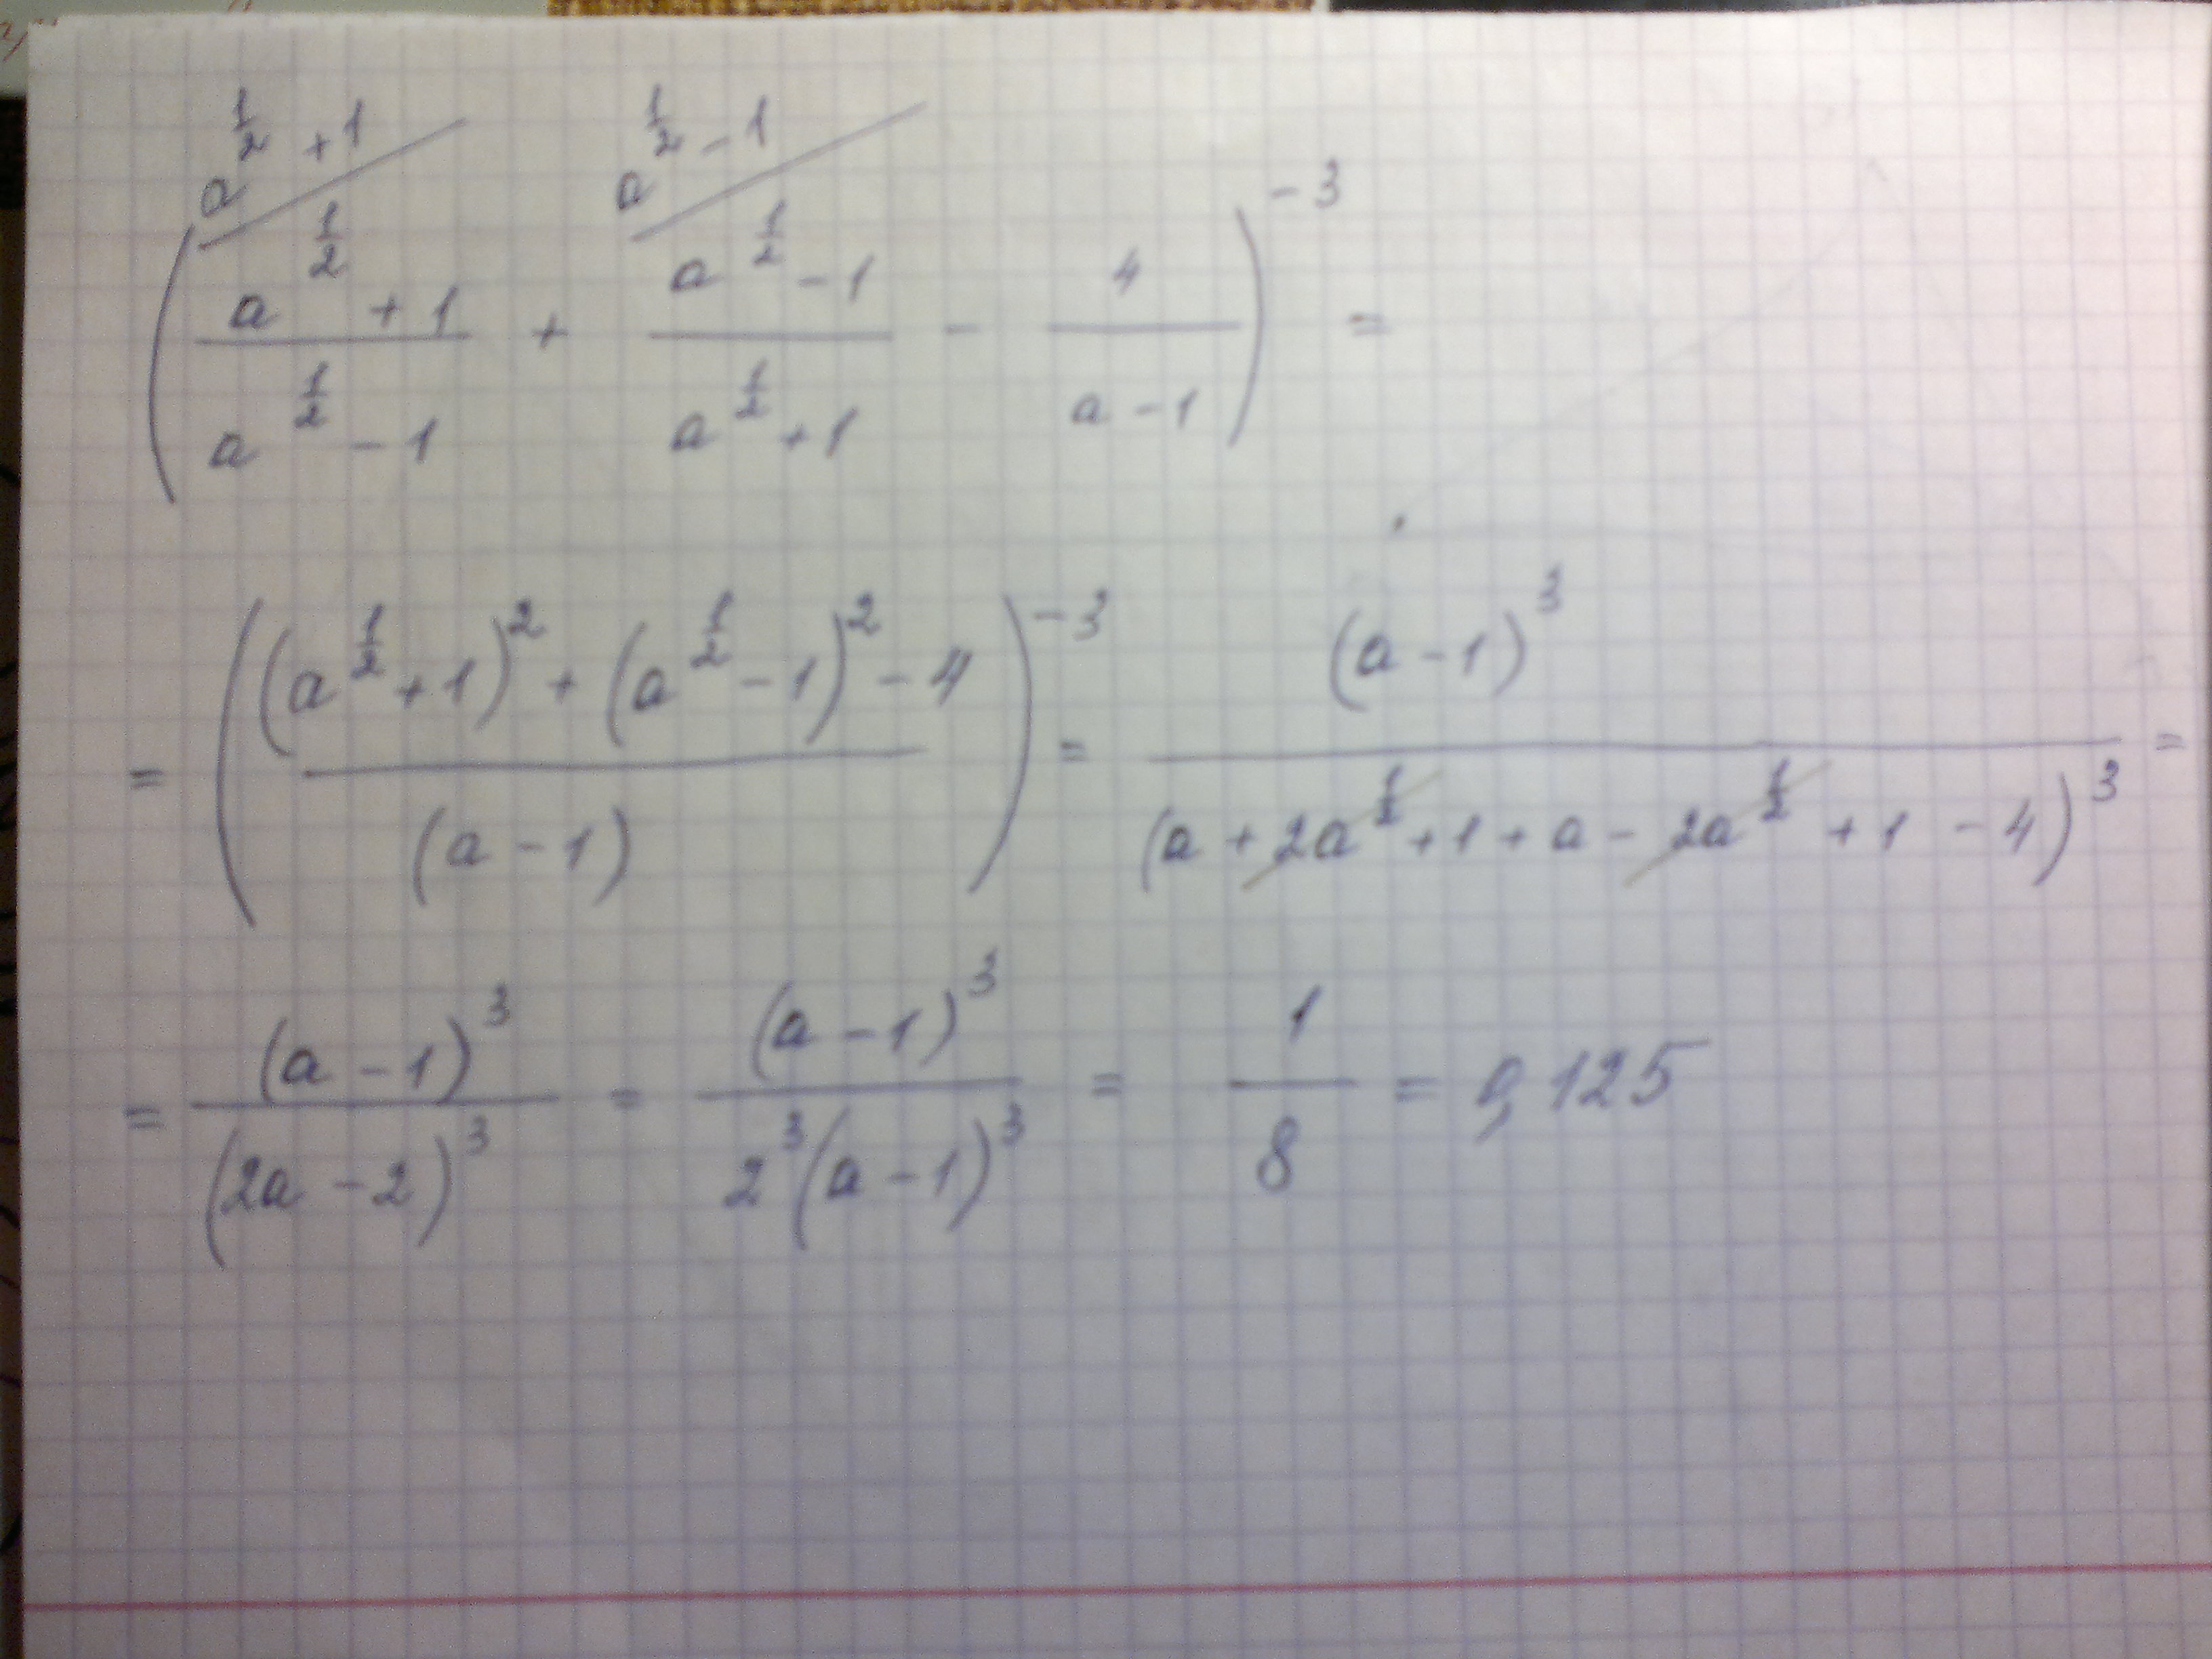 a^{1/2} + 1   a^{1/2} - 1
( (a^{1/2} + 1)/(a^{1/2} - 1) + (a^{1/2} - 1)/(a^{1/2} + 1) - 4/(a - 1) )^{-3} =
= ( ((a^{1/2} + 1)^2 + (a^{1/2} - 1)^2 - 4)/(a - 1) )^{-3} = (a - 1)^3/(a + 2a^{1/2} + 1 + a - 2a^{1/2} + 1 - 4)^3 =
= (a - 1)^3/(2a - 2)^3 = (a - 1)^3/(2^3 (a - 1)^3) = 1/8 = 0,125